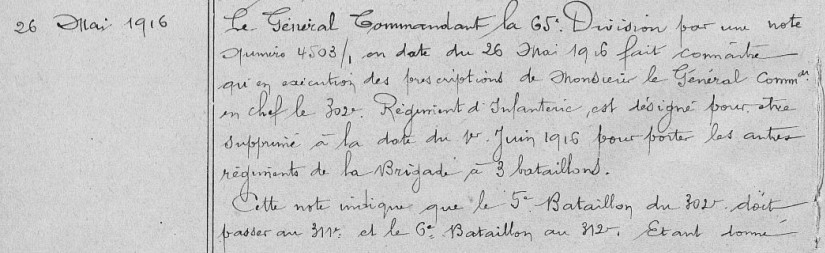 26 Mai 1916
Le Général Commandant la 65e Division par une note
numéro 4503/1 en date du 26 Mai 1916 fait connaître
qu'en exécution des prescriptions de Monsieur le Général Commdt
en chef le 302e Régiment d'Infanterie, est désigné pour être
supprimé à la date du 1er Juin 1916 pour porter les autres
régiments de la Brigade à 3 bataillons.
Cette note indique que le 5e Bataillon du 302e doit
passer au 311e et le 6e Bataillon au 312e. Etant donné